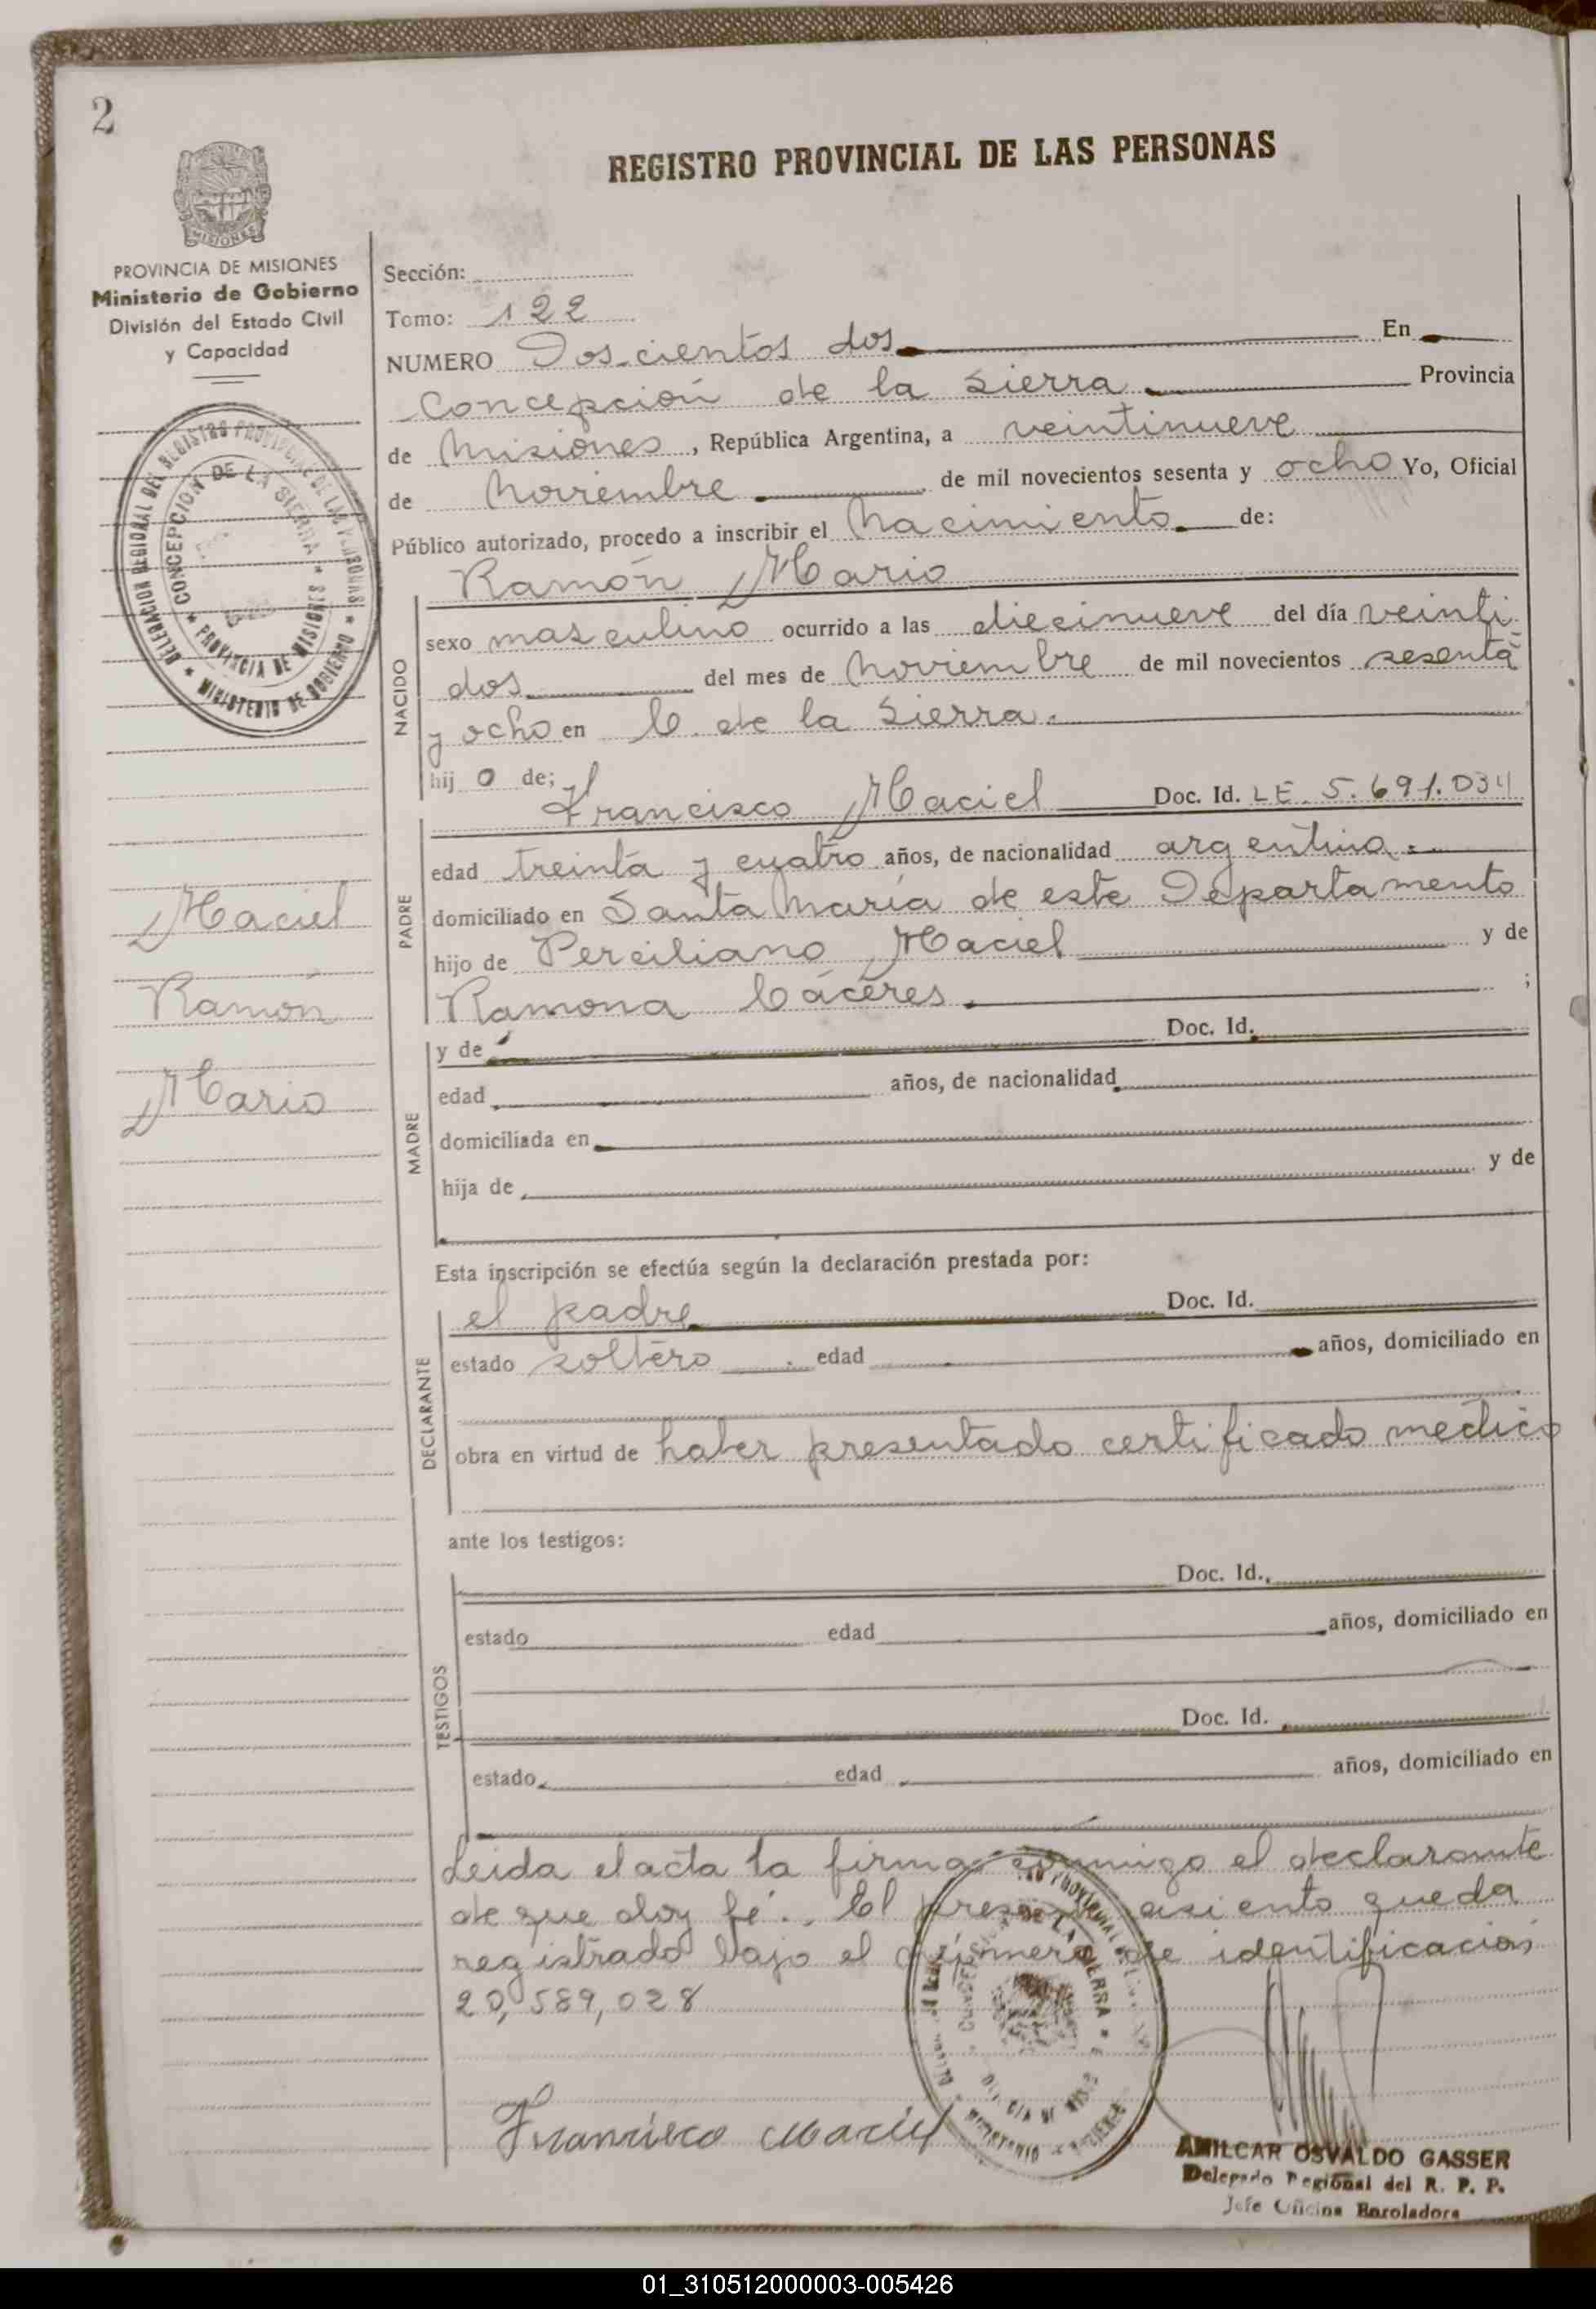 2
REGISTRO PROVINCIAL DE LAS PERSONAS
MISIONES
PROVINCIA DE MISIONES
Ministerio de Gobierno
División del Estado Civil
y Capacidad
DELEGACION REGIONAL DEL REGISTRO PROVINCIAL DE LAS PERSONAS * MINISTERIO DE GOBIERNO *
CONCEPCION DE LA SIERRA * PROVINCIA DE MISIONES *
Maciel
Ramón
Mario
Sección:
Tomo: 122
NUMERO Doscientos dos En
Concepción de la Sierra Provincia
de Misiones, República Argentina, a veintinueve
de Noviembre de mil novecientos sesenta y ocho Yo, Oficial
Público autorizado, procedo a inscribir el Nacimiento de:
Ramón Mario
NACIDO
sexo masculino ocurrido a las diecinueve del día veinti-
dos del mes de Noviembre de mil novecientos sesenta
y ocho en C. de la Sierra.
hijo de;
Francisco Maciel Doc. Id. LE. 5.691.034
PADRE
edad treinta y cuatro años, de nacionalidad argentina.
domiciliado en Santa María de este Departamento
hijo de Perciliano Maciel y de
Ramona Cáceres. ;
MADRE
y de Doc. Id.
edad años, de nacionalidad
domiciliada en
hija de y de
Esta inscripción se efectúa según la declaración prestada por:
DECLARANTE
el padre Doc. Id.
estado soltero edad años, domiciliado en
obra en virtud de haber presentado certificado medico
ante los testigos:
TESTIGOS
Doc. Id.
estado edad años, domiciliado en
Doc. Id.
estado edad años, domiciliado en
Leida el acta la firma conmigo el declarante
de que doy fé.. El presente asiento queda
registrado bajo el número de identificación
20,589,028
Francisco Maciel
AMILCAR OSVALDO GASSER
Delegado Regional del R. P. P.
Jefe Oficina Enroladora
01_310512000003-005426